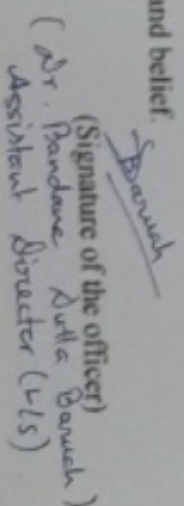 and belief.
Baruah
(Signature of the officer)
(Dr. Bandana Dutta Baruah)
Assistant Director (L/S)